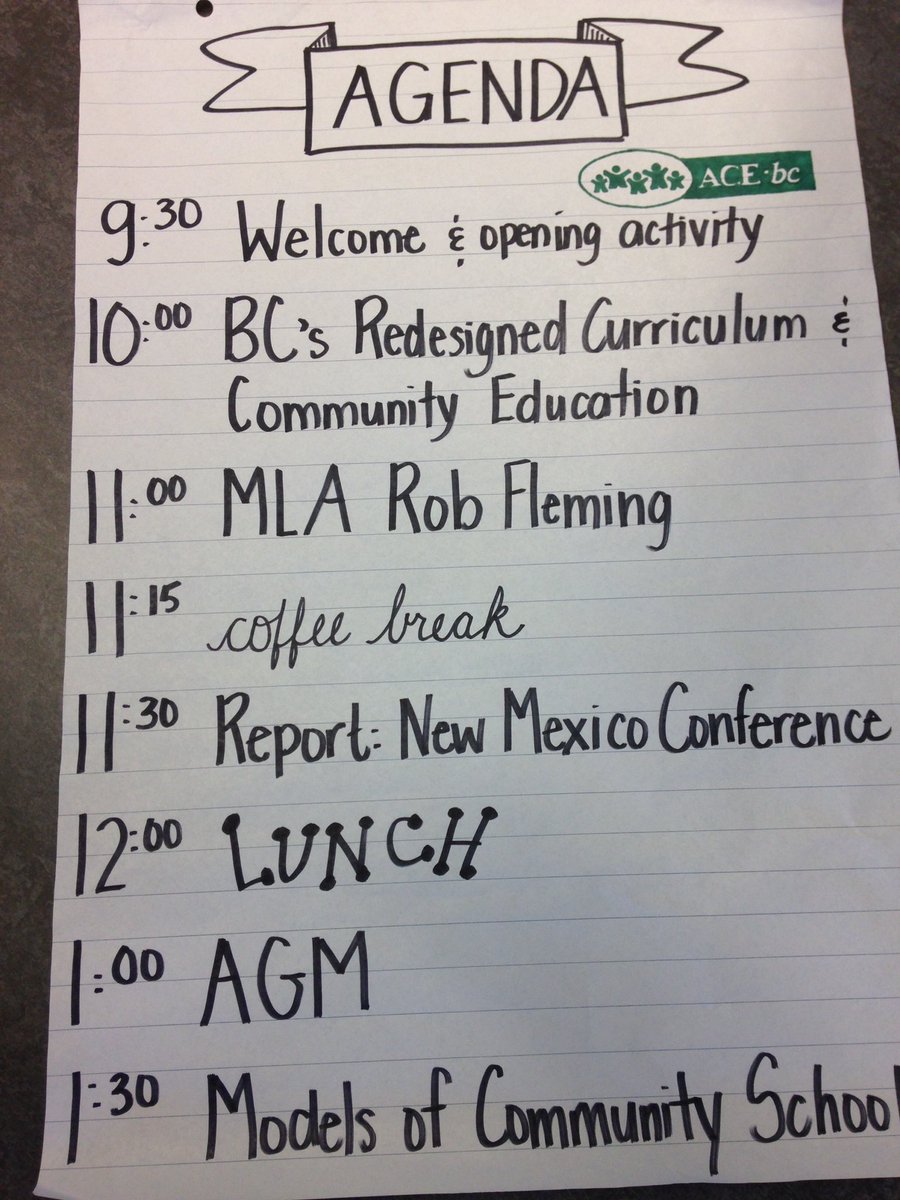 AGENDA
A.C.E·bc
9:30 Welcome & opening activity
10:00 BC's Redesigned Curriculum &
Community Education
11:00 MLA Rob Fleming
11:15 coffee break
11:30 Report: New Mexico Conference
12:00 LUNCH
1:00 AGM
1:30 Models of Community School